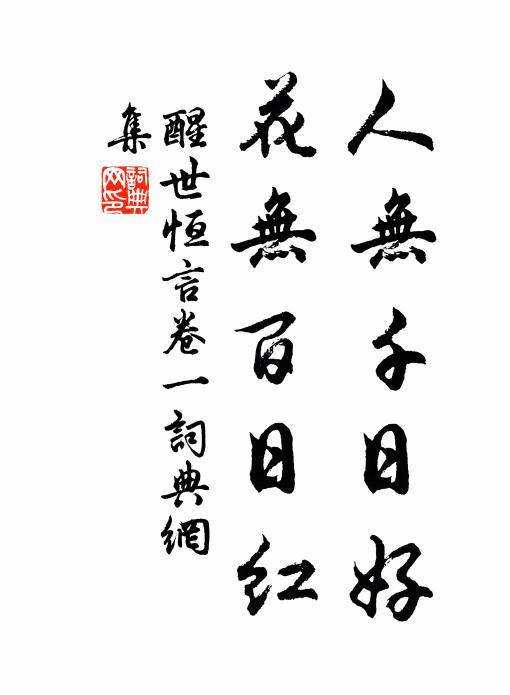 人無千日好
花無百日紅
醒世恒言卷一詞典網
集
詞典網印